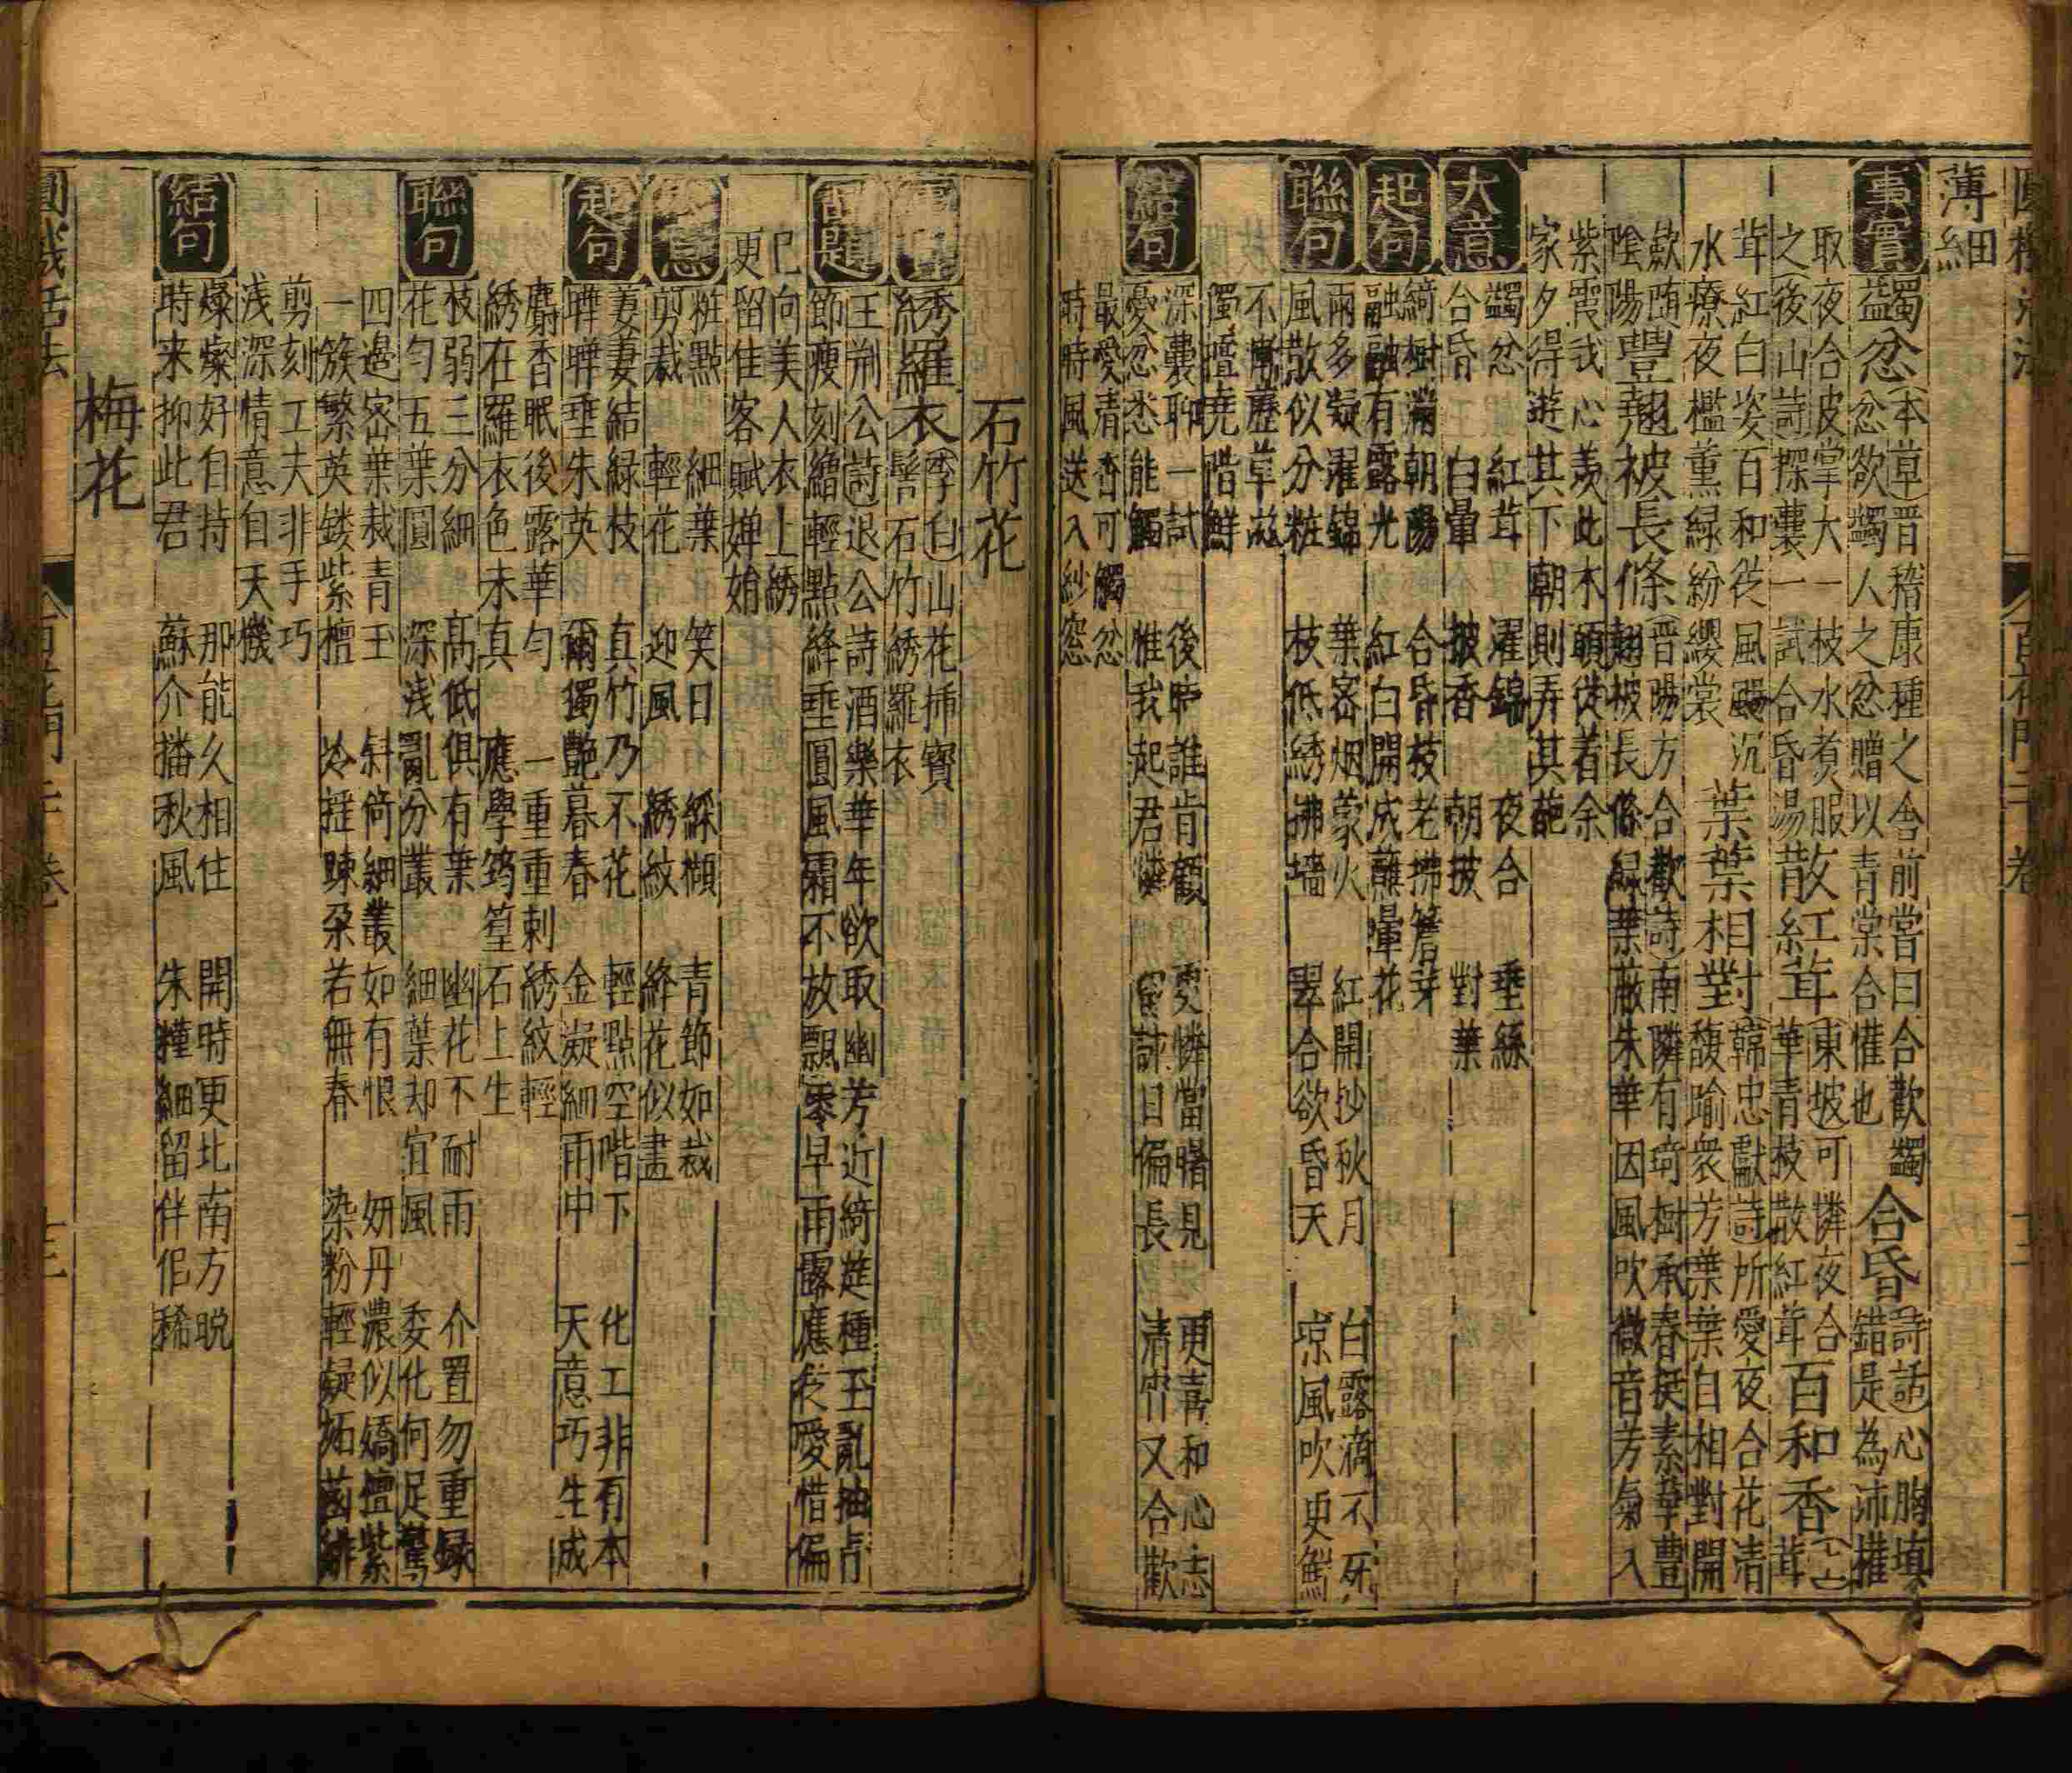 薄細
事實
蠲忿
本草晋稽康種之舍前嘗曰合歡蠲
忿忿欲蠲人之忿贈以青棠合懽也
合昏
詩話心胸填
錯是為沛摧
取夜合皮掌大一枝水煑服
之後山詩探囊一試合昏湯
散紅茸
東坡可憐夜合
華青枝散紅茸
百和香
茸紅白姿百和從風颺沉
水療夜檻薰緑紛纓裳
葉葉相對
韓忠獻詩所愛夜合花清
馥踰衆芳葉葉自相對開
歛隨
陰陽
豐翹被長條
晋陽方合歡詩南隣有琦樹承春挺素華豊
翹被長條緑葉蔽朱華因風吹微音芳氣入
紫霞我心羡此木頭從着余
家夕得遊其下朝則弄其葩
大意
蠲忿 紅茸 濯錦 夜合 垂絲
合昏 白暈 披香 朝披 對葉
起句
綺樹滿朝陽 合昏枝老拂簷芽
融融有露光 紅白開成蘸暈花
聯句
雨多凝濯錦 葉密烟蒙火 紅開抄秋月 白露滴不死
風散似分粧 枝低綉拂墻 翠合欲昏天 凉風吹更鮮
不慚歴草
獨擅堯階鮮
結句
深囊聊一試 後時誰肯顧 更憐當曙見 更青和心志
憂忿悉能觸 惟我起君憐 日偏長 清宵又合歡
最愛清香可觸忿
時時風送入紗窓
石竹花
綉羅衣
李白山花揷寶
髻石竹綉羅衣
品題
王荊公蔚退公詩酒樂華年欲取幽芳近綺莚種玉亂抽青
節瘦刻繒輕點絳垂圓風霜不放飄零早雨露應從愛惜偏
已向美人衣上綉
更留佳客賦嬋娟
大意
粧點 細葉 笑日 綵纈 青節如裁
剪裁 輕花 迎風 綉紋 絳花似畫
起句
萋萋結緑枝 真竹乃不花 輕點空階下 化工非有本
曄曄垂朱英 爾獨艶暮春 金凝細雨中 天意巧生成
麝香眠後露華勻 一重重刺綉紋輕
綉在羅衣色未真 應學筠篁石上生
聯句
枝弱三分細 髙低俱有葉 幽花不耐雨 介置勿重録
花勻五葉圓 深浅亂分叢 細葉却宜風 委化何足驚
四邊宻葉裁青玉 斜倚細叢如有恨 妍丹濃似嬌檀紫
一簇繁英鏤紫檀 冷摧踈朶若無春 染粉輕疑拓菡緋
剪刻工夫非手巧
浅深情意自天機
結句
燦燦好自持 那能久相住 開時更北南方脱
時来抑此君 蘇介播秋風 朱糭細留伴侶稀
梅花